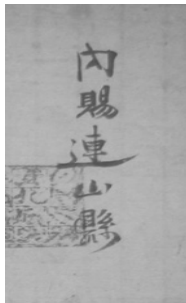 內賜連山縣